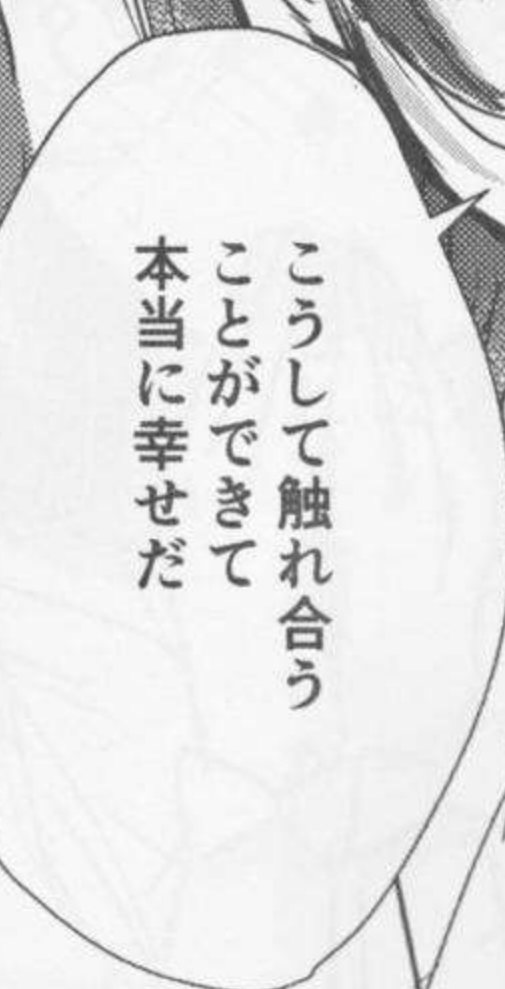 こうして触れ合う
ことができて
本当に幸せだ